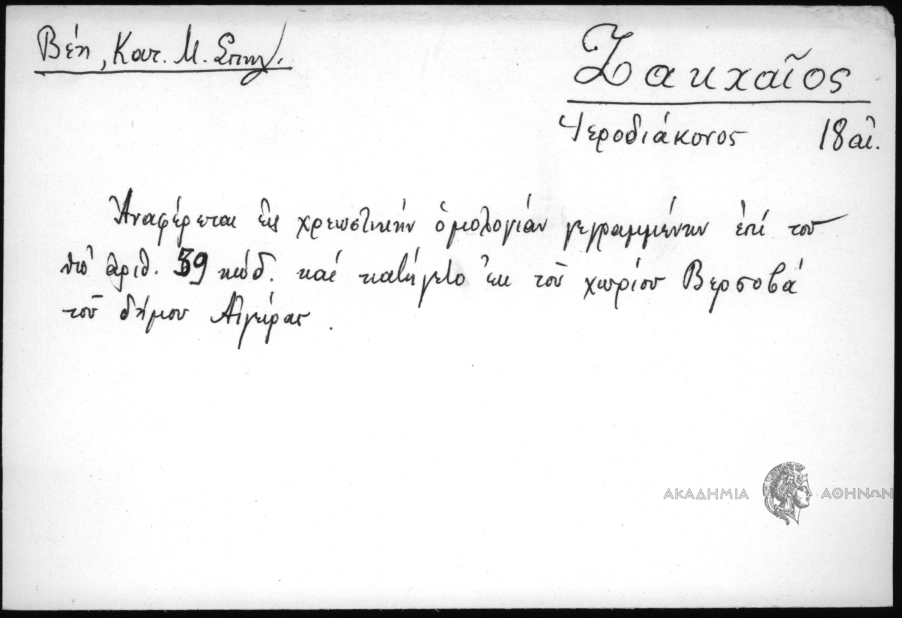 Βέη, Κατ. Μ. Σπηλ.
Ζακχαῖος
Ἱεροδιάκονος 18 αἰ.
Ἀναφέρεται εἰς χρεωστικὴν ὁμολογίαν γεγραμμένην ἐπί του
ὑπ' ἀριθ. 39 κώδ. καί κατήγετο ἐκ τοῦ χωρίου Βερσοβᾶ
τοῦ δήμου Αἰγείρας.
ΑΚΑΔΗΜΙΑ ΑΘΗΝΩΝ